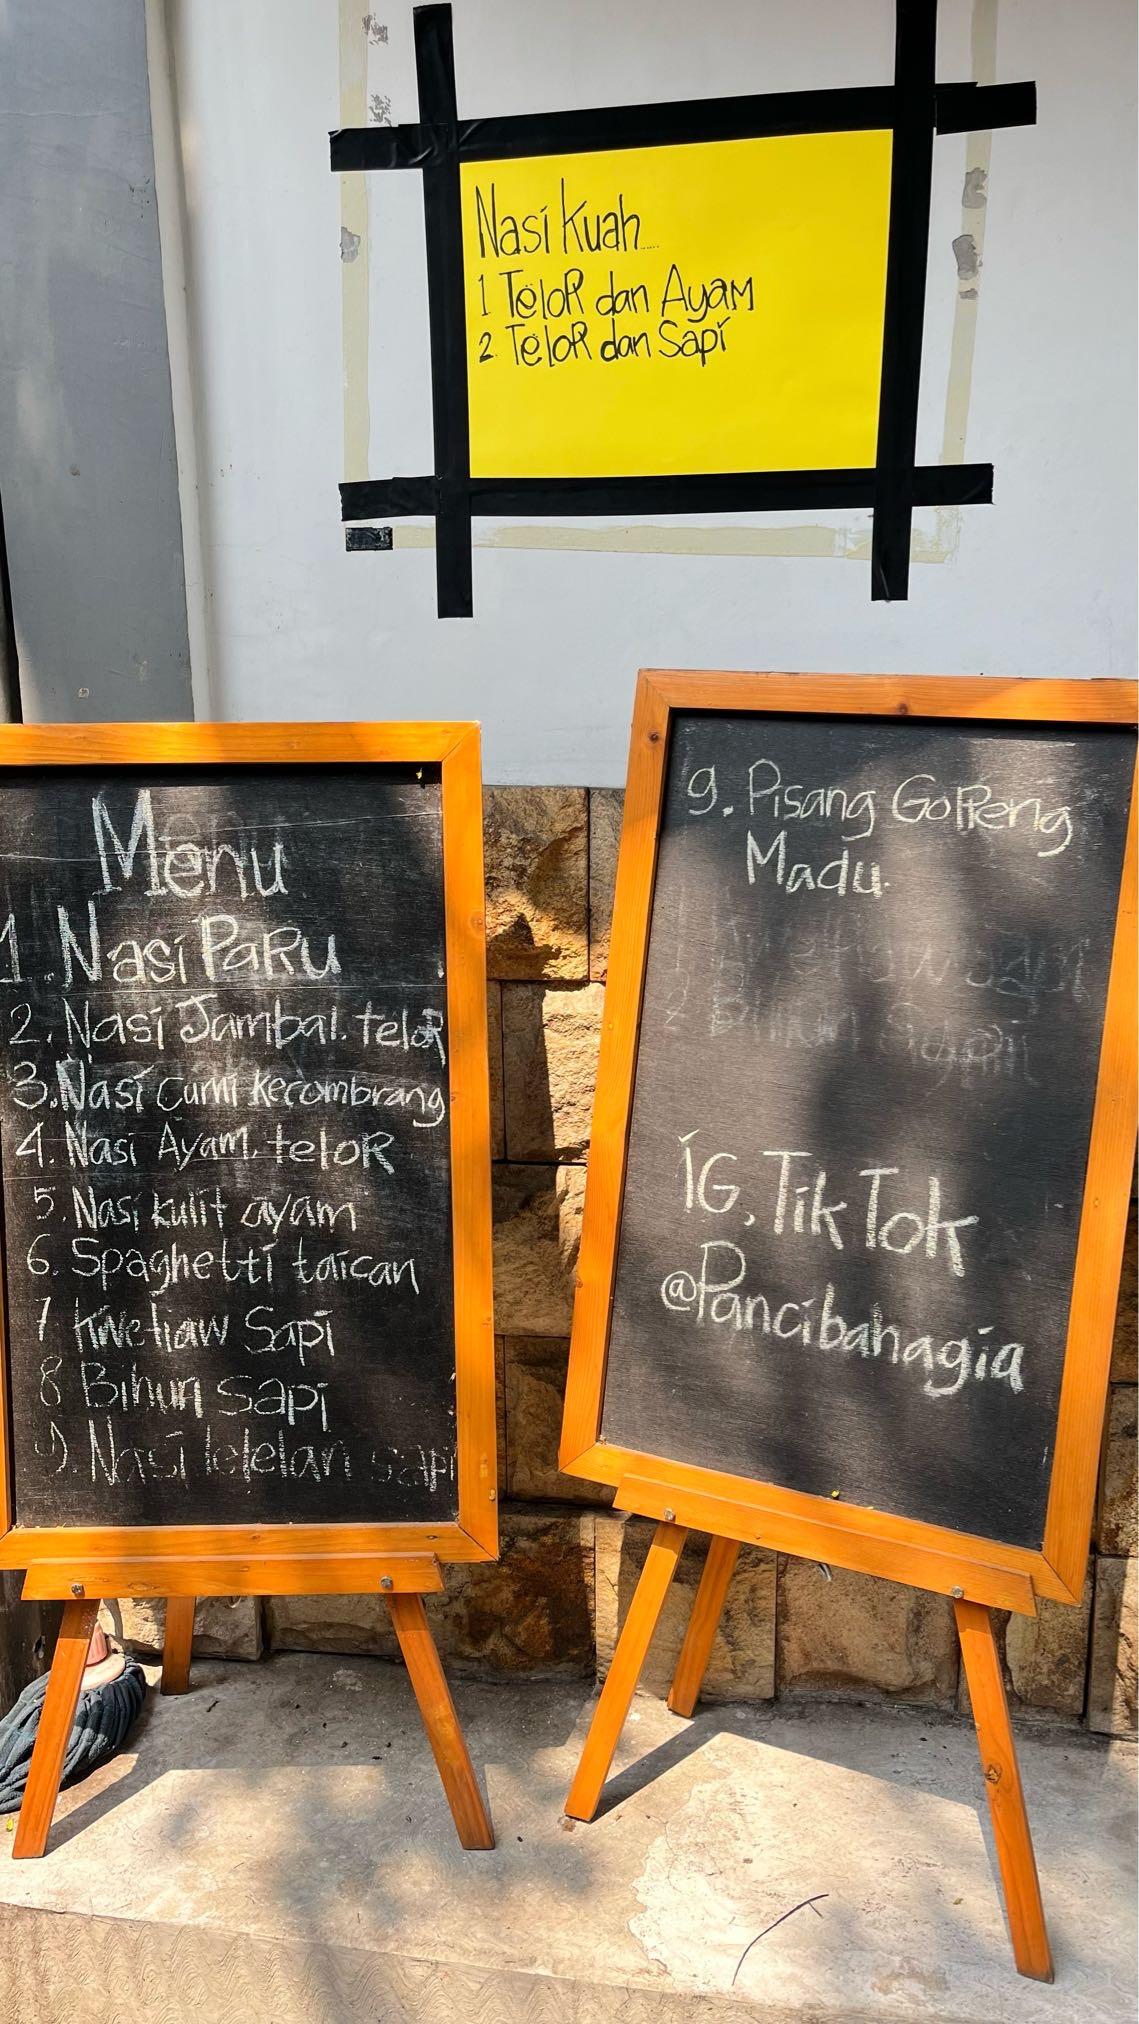 Nasi Kuah......
1 Telor dan Ayam
2. Telor dan Sapi
Menu
1. Nasi Paru
2. Nasi Jambal. telor
3. Nasi cumi kecombrang
4. Nasi Ayam. telor
5. Nasi kulit ayam
6. Spaghetti taican
7 Kwetiaw Sapi
8 Bihun sapi
9. Nasi tetelan sapi
9. Pisang Goreng
Madu.
IG, TikTok
@Pancibahagia